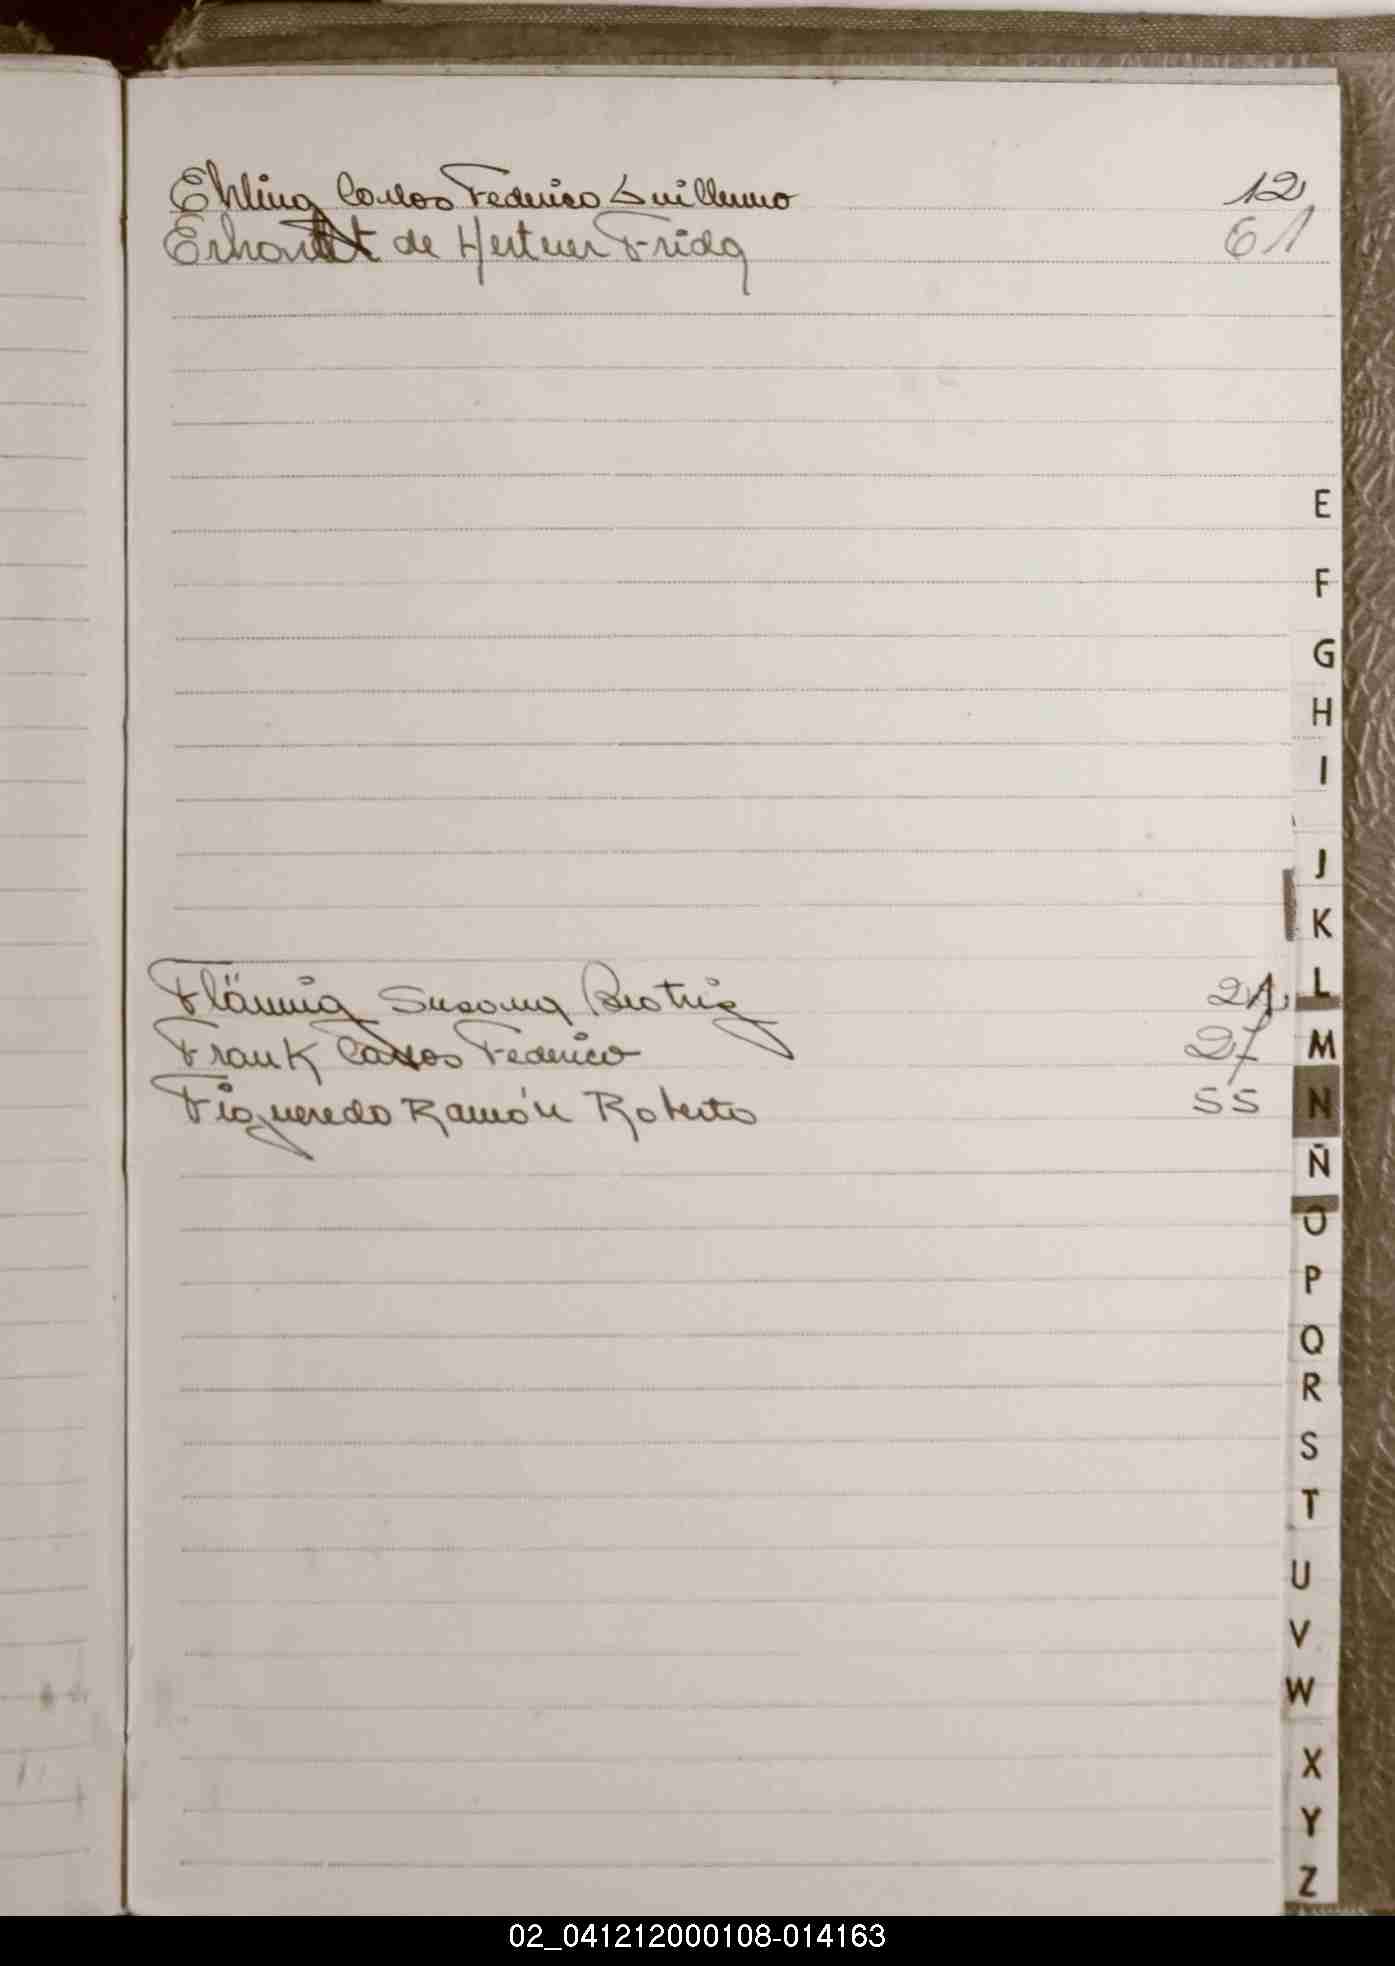 Ehling Carlos Federico Guillermo 12
Erhardt de Hertner Frida 61
E
F
G
H
I
J
K
Flämig Susana Beatriz 21
L
Frank Carlos Federico 27
M
Figueredo Ramón Roberto 55
N
Ñ
O
P
Q
R
S
T
U
V
W
X
Y
Z
02_041212000108-014163